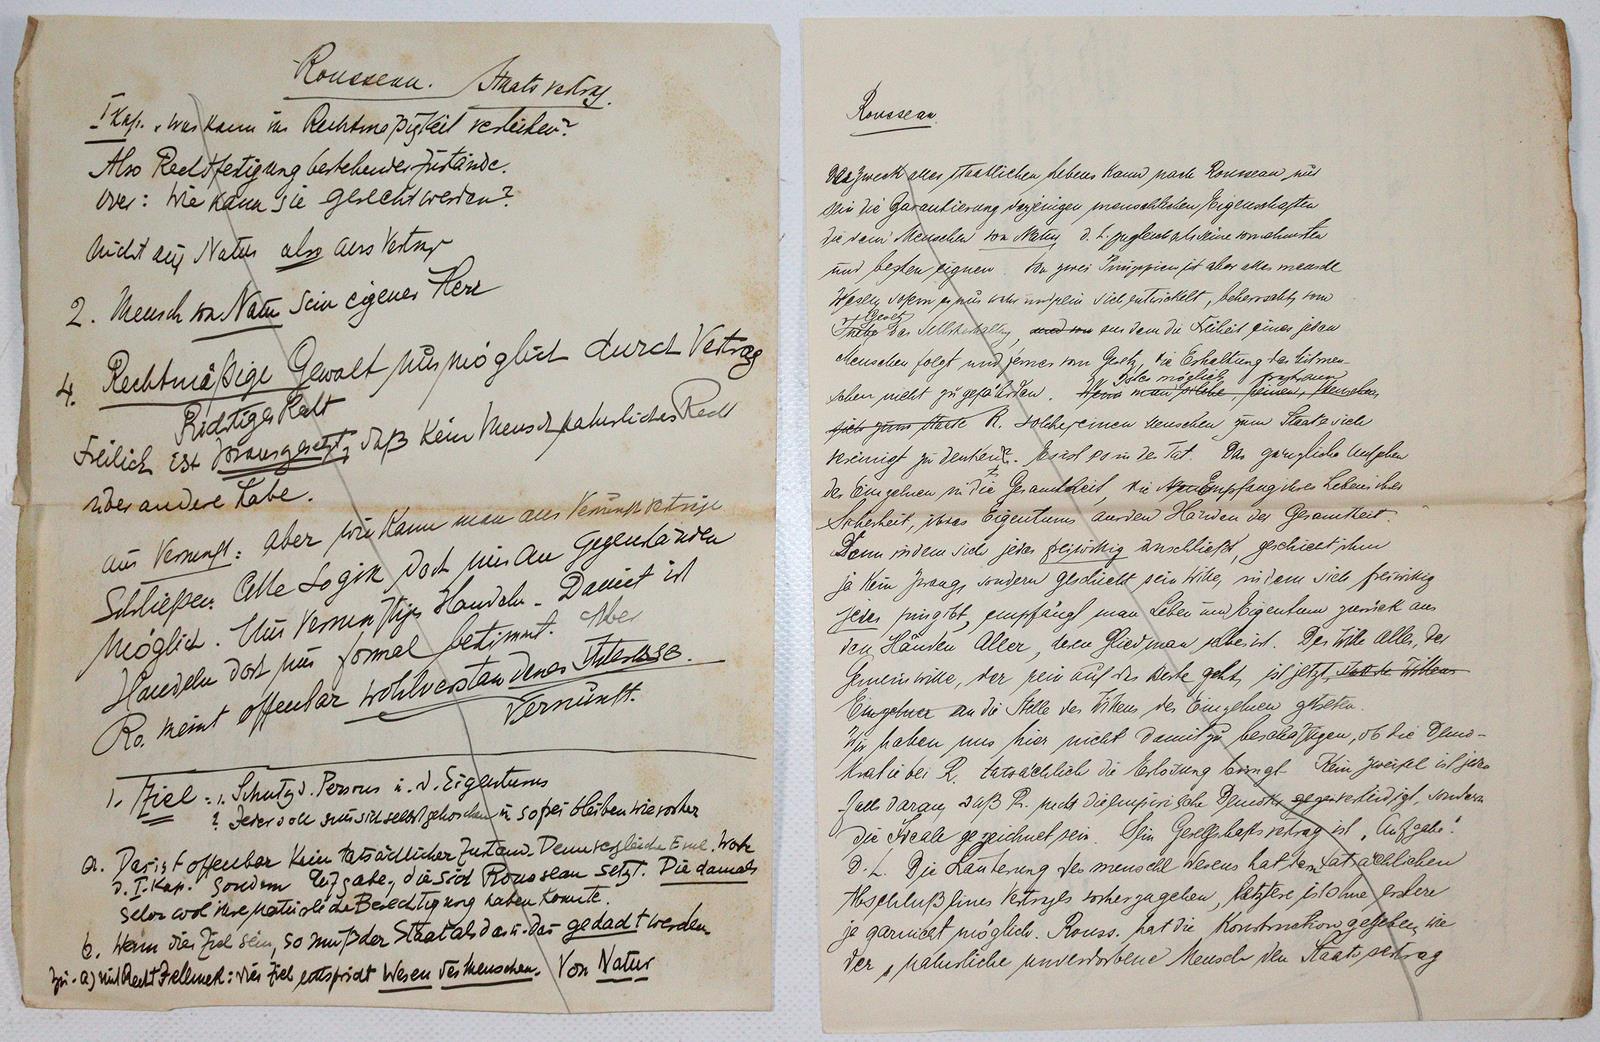 Rousseau. Staatsvertrag.
I Kap. "Was kann ihr Rechtmäßigkeit verleihen?
Also Rechtfertigung bestehender Zustände.
Oder: Wie kann sie gerecht werden?
Nicht aus Natur also aus Vertrag
2. Mensch von Natur sein eigener Herr
4. Rechtmäßige Gewalt nur möglich durch Vertrag
Richtiges Recht
Freilich ist vorausgesetzt, daß kein Mensch natürliches Recht
über andere habe.
aus Vernunft: Aber wie kann man aus Vernunft Verträge
schließen. Alle Logik doch nur an Gegenständen
möglich. Nur vernünftiges Handeln. Damit ist
Handeln doch nur formal bestimmt. Aber
Ro. meint offenbar wohlverstandenes Interesse.
Vernunft.
1. Ziel: 1. Schutz d. Person u. d. Eigentums
2. Jeder soll nur sich selbst gehorchen u so frei bleiben wie vorher
a. Das ist offenbar kein tatsächlicher Zustand. Denn vergleiche Worte
d. I. Kap. sondern Aufgabe, die sich Rousseau setzt. Die damals
selbst wohl ihre natürliche Berechtigung haben konnte.
b. Wenn dies Ziel sein, so muß der Staat als das u. das gedacht werden.
zu a) mit Recht: dies Ziel entspricht Wesen des Menschen. Von Natur
Rousseau.
Zweck alles staatlichen Lebens kann nach Rousseau nur
sein die Garantierung derjenigen menschlichen Eigenschaften
die dem Menschen von Natur, d. h. zugleich als seine vornehmsten
und besten eignen. Von zwei Prinzipien ist aber alles menschl
Wesen, sofern es nur wahr und rein sich entwickelt, beherrscht, vom
Gesetz
Triebe das Selbsterhaltg, und von aus dem die Freiheit eines jeden
Menschen folgt und ferner vom Gesetz, die Erhaltung des Mitmen-
schen nicht zu gefährden. Wenn man solche Menschen
Ist es möglich
sich zum Staate R. solche reinen Menschen zum Staate sich
vereinigt zu denken?. Es ist so in der Tat. Das gänzliche Aufgehen
des Einzelnen in die Gesamtheit, die Empfang ihres Lebens ihrer
Sicherheit, ihres Eigentums aus den Händen der Gesamtheit.
Denn indem sich jeder freiwillig anschließt, geschieht ihm
ja kein Zwang, sondern geschieht sein Wille, indem sich freiwillig
jeder hingibt, empfängt man Leben und Eigentum zurück aus
den Händen Aller, deren Glied man selber ist. Der Wille Aller, der
Gemeinwille, der rein auf das Beste geht, ist jetzt, statt des Willens
Einzelner an die Stelle des Willens des Einzelnen getreten.
Wir haben uns hier nicht damit zu beschäftigen, ob die Demo-
kratie bei R. tatsächlich die Erlösung bringt. Kein Zweifel ist jeden
falls daran, daß R. nicht die empirische Demokr. verteidigt, sondern
die Ideale gezeichnet sein. Sein Gesellschaftsvertrag ist "Aufgabe".
D. h. Die Läuterung des menschl Wesens hat dem tatsächlichen
Abschluß eines Vertrags vorherzugehen, letztere ist ohne erstere
ja garnicht möglich. Rouss. hat die Konstruktion gegeben, wie
der natürliche unverdorbene Mensch den Staatsvertrag